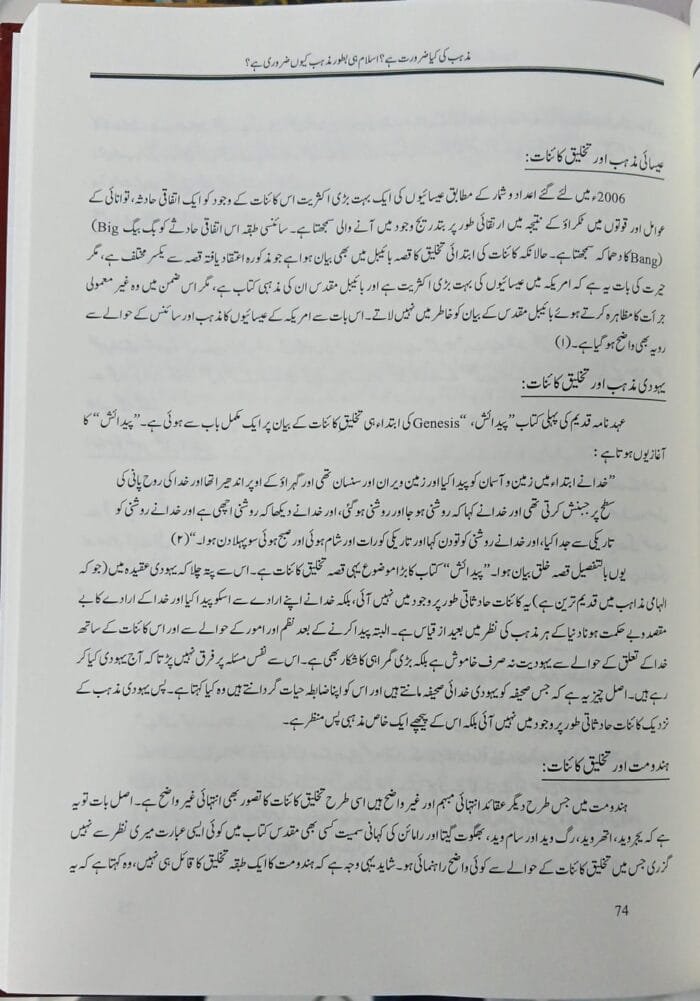 مذہب کی کیا ضرورت ہے؟ اسلام ہی بطور مذہب کیوں ضروری ہے؟
عیسائی مذہب اور تخلیق کائنات:
2006ء میں لئے گئے اعداد و شمار کے مطابق عیسائیوں کی ایک بہت بڑی اکثریت اس کائنات کے وجود کو ایک اتفاقی حادثہ، توانائی کے
عوامل اور قوتوں میں ٹکراؤ کے نتیجہ میں ارتقائی طور پر بتدریج وجود میں آنے والی سمجھتا ہے۔ سائنسی طبقہ اس اتفاقی حادثے کو بگ بیگ (Big
Bang) کا دھماکہ سمجھتا ہے۔ حالانکہ کائنات کی ابتدائی تخلیق کا قصہ بائیبل میں بھی بیان ہوا ہے جو مذکورہ اعتقاد یافتہ قصہ سے یکسر مختلف ہے، مگر
حیرت کی بات یہ ہے کہ امریکہ میں عیسائیوں کی بہت بڑی اکثریت ہے اور بائیبل مقدس ان کی مذہبی کتاب ہے، مگر اس ضمن میں وہ غیر معمولی
جرأت کا مظاہرہ کرتے ہوئے بائیبل مقدس کے بیان کو خاطر میں نہیں لاتے۔ اس بات سے امریکہ کے عیسائیوں کا مذہب اور سائنس کے حوالے سے
رویہ بھی واضح ہو گیا ہے۔ (۱)
یہودی مذہب اور تخلیق کائنات:
عہد نامہ قدیم کی پہلی کتاب ”پیدائش، “Genesis کی ابتداء ہی تخلیق کائنات کے بیان پر ایک مکمل باب سے ہوئی ہے۔ ”پیدائش“ کا
آغاز یوں ہوتا ہے:
”خدا نے ابتداء میں زمین و آسمان کو پیدا کیا اور زمین ویران اور سنسان تھی اور گہراؤ کے اوپر اندھیرا تھا اور خدا کی روح پانی کی
سطح پر جنبش کرتی تھی اور خدا نے کہا کہ روشنی ہو جا اور روشنی ہو گئی، اور خدا نے دیکھا کہ روشنی اچھی ہے اور خدا نے روشنی کو
تاریکی سے جدا کیا، اور خدا نے روشنی کو تو دن کہا اور تاریکی کو رات اور شام ہوئی اور صبح ہوئی سو پہلا دن ہوا۔“ (۲)
یوں بالتفصیل قصہ خلق بیان ہوا۔ ”پیدائش“ کتاب کا بڑا موضوع یہی قصہ تخلیق کائنات ہے۔ اس سے پتہ چلا کہ یہودی عقیدہ میں (جو کہ
الہامی مذاہب میں قدیم ترین ہے) یہ کائنات حادثاتی طور پر وجود میں نہیں آئی، بلکہ خدا نے اپنے ارادے سے اسکو پیدا کیا اور خدا کے ارادے کا بے
مقصد و بے حکمت ہونا دنیا کے ہر مذہب کی نظر میں بعید از قیاس ہے۔ البتہ پیدا کرنے کے بعد نظم اور امور کے حوالے سے اور اس کائنات کے ساتھ
خدا کے تعلق کے حوالے سے یہودیت نہ صرف خاموش ہے بلکہ بڑی گمراہی کا شکار بھی ہے۔ اس سے نفس مسئلہ پر فرق نہیں پڑتا کہ آج یہودی کیا کر
رہے ہیں۔ اصل چیز یہ ہے کہ جس صحیفہ کو یہودی خدائی صحیفہ مانتے ہیں اور اس کو اپنا ضابطہ حیات گردانتے ہیں وہ کیا کہتا ہے۔ پس یہودی مذہب کے
نزدیک کائنات حادثاتی طور پر وجود میں نہیں آئی بلکہ اس کے پیچھے ایک خاص مذہبی پس منظر ہے۔
ہندومت اور تخلیق کائنات:
ہندومت میں جس طرح دیگر عقائد انتہائی مبہم اور غیر واضح ہیں اسی طرح تخلیق کائنات کا تصور بھی انتہائی غیر واضح ہے۔ اصل بات تو یہ
ہے کہ یجر وید، اتھر وید، رگ وید اور سام وید، بھگوت گیتا اور رامائن کی کہانی سمیت کسی بھی مقدس کتاب میں کوئی ایسی عبارت میری نظر سے نہیں
گزری جس میں تخلیق کائنات کے حوالے سے کوئی واضح راہنمائی ہو۔ شاید یہی وجہ ہے کہ ہندومت کا ایک طبقہ تخلیق کا قائل ہی نہیں، وہ کہتا ہے کہ یہ
74